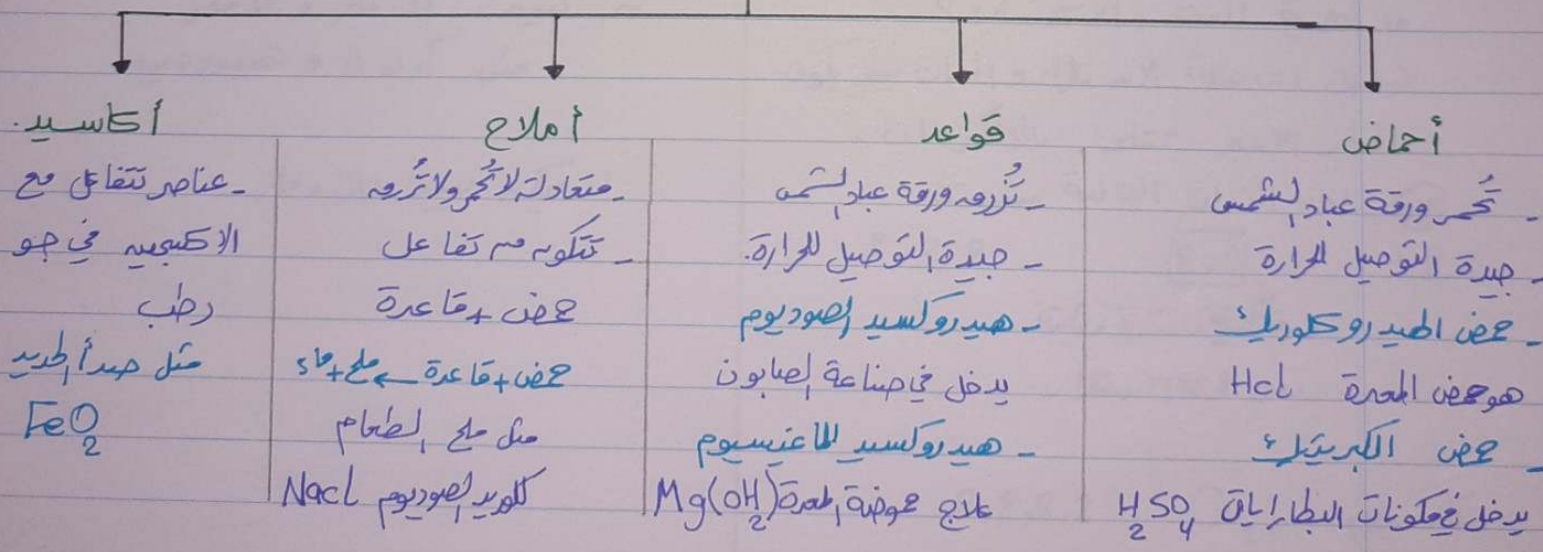 أحماض
- تُحمر ورقة عباد الشمس
- جيدة التوصيل للحرارة
- حمض الهيدروكلوريك
هو حمض المعدة Hcl
- حمض الكبريتيك
يدخل في مكونات البطاريات H₂SO₄
قواعد
- تُزرق ورقة عباد الشمس
- جيدة التوصيل للحرارة.
- هيدروكسيد الصوديوم
يدخل في صناعة الصابون
- هيدروكسيد الماغنيسيوم
علاج حموضة المعدة Mg(OH₂)
أملاح
- متعادلة لا تُحمر ولا تُزرق
- تتكون من تفاعل
حمض + قاعدة
حمض + قاعدة ← ملح + ماء
مثل ملح الطعام
كلوريد الصوديوم Nacl
أكاسيد.
- عناصر تتفاعل مع
الاكسجين في جو
رطب
مثل صدأ الحديد
FeO₂